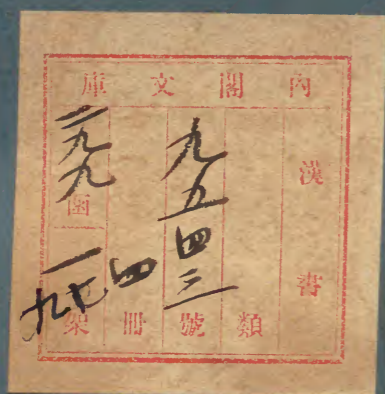 內閣文庫
漢書
類
九五四三號
四冊
二九九函
一九七架